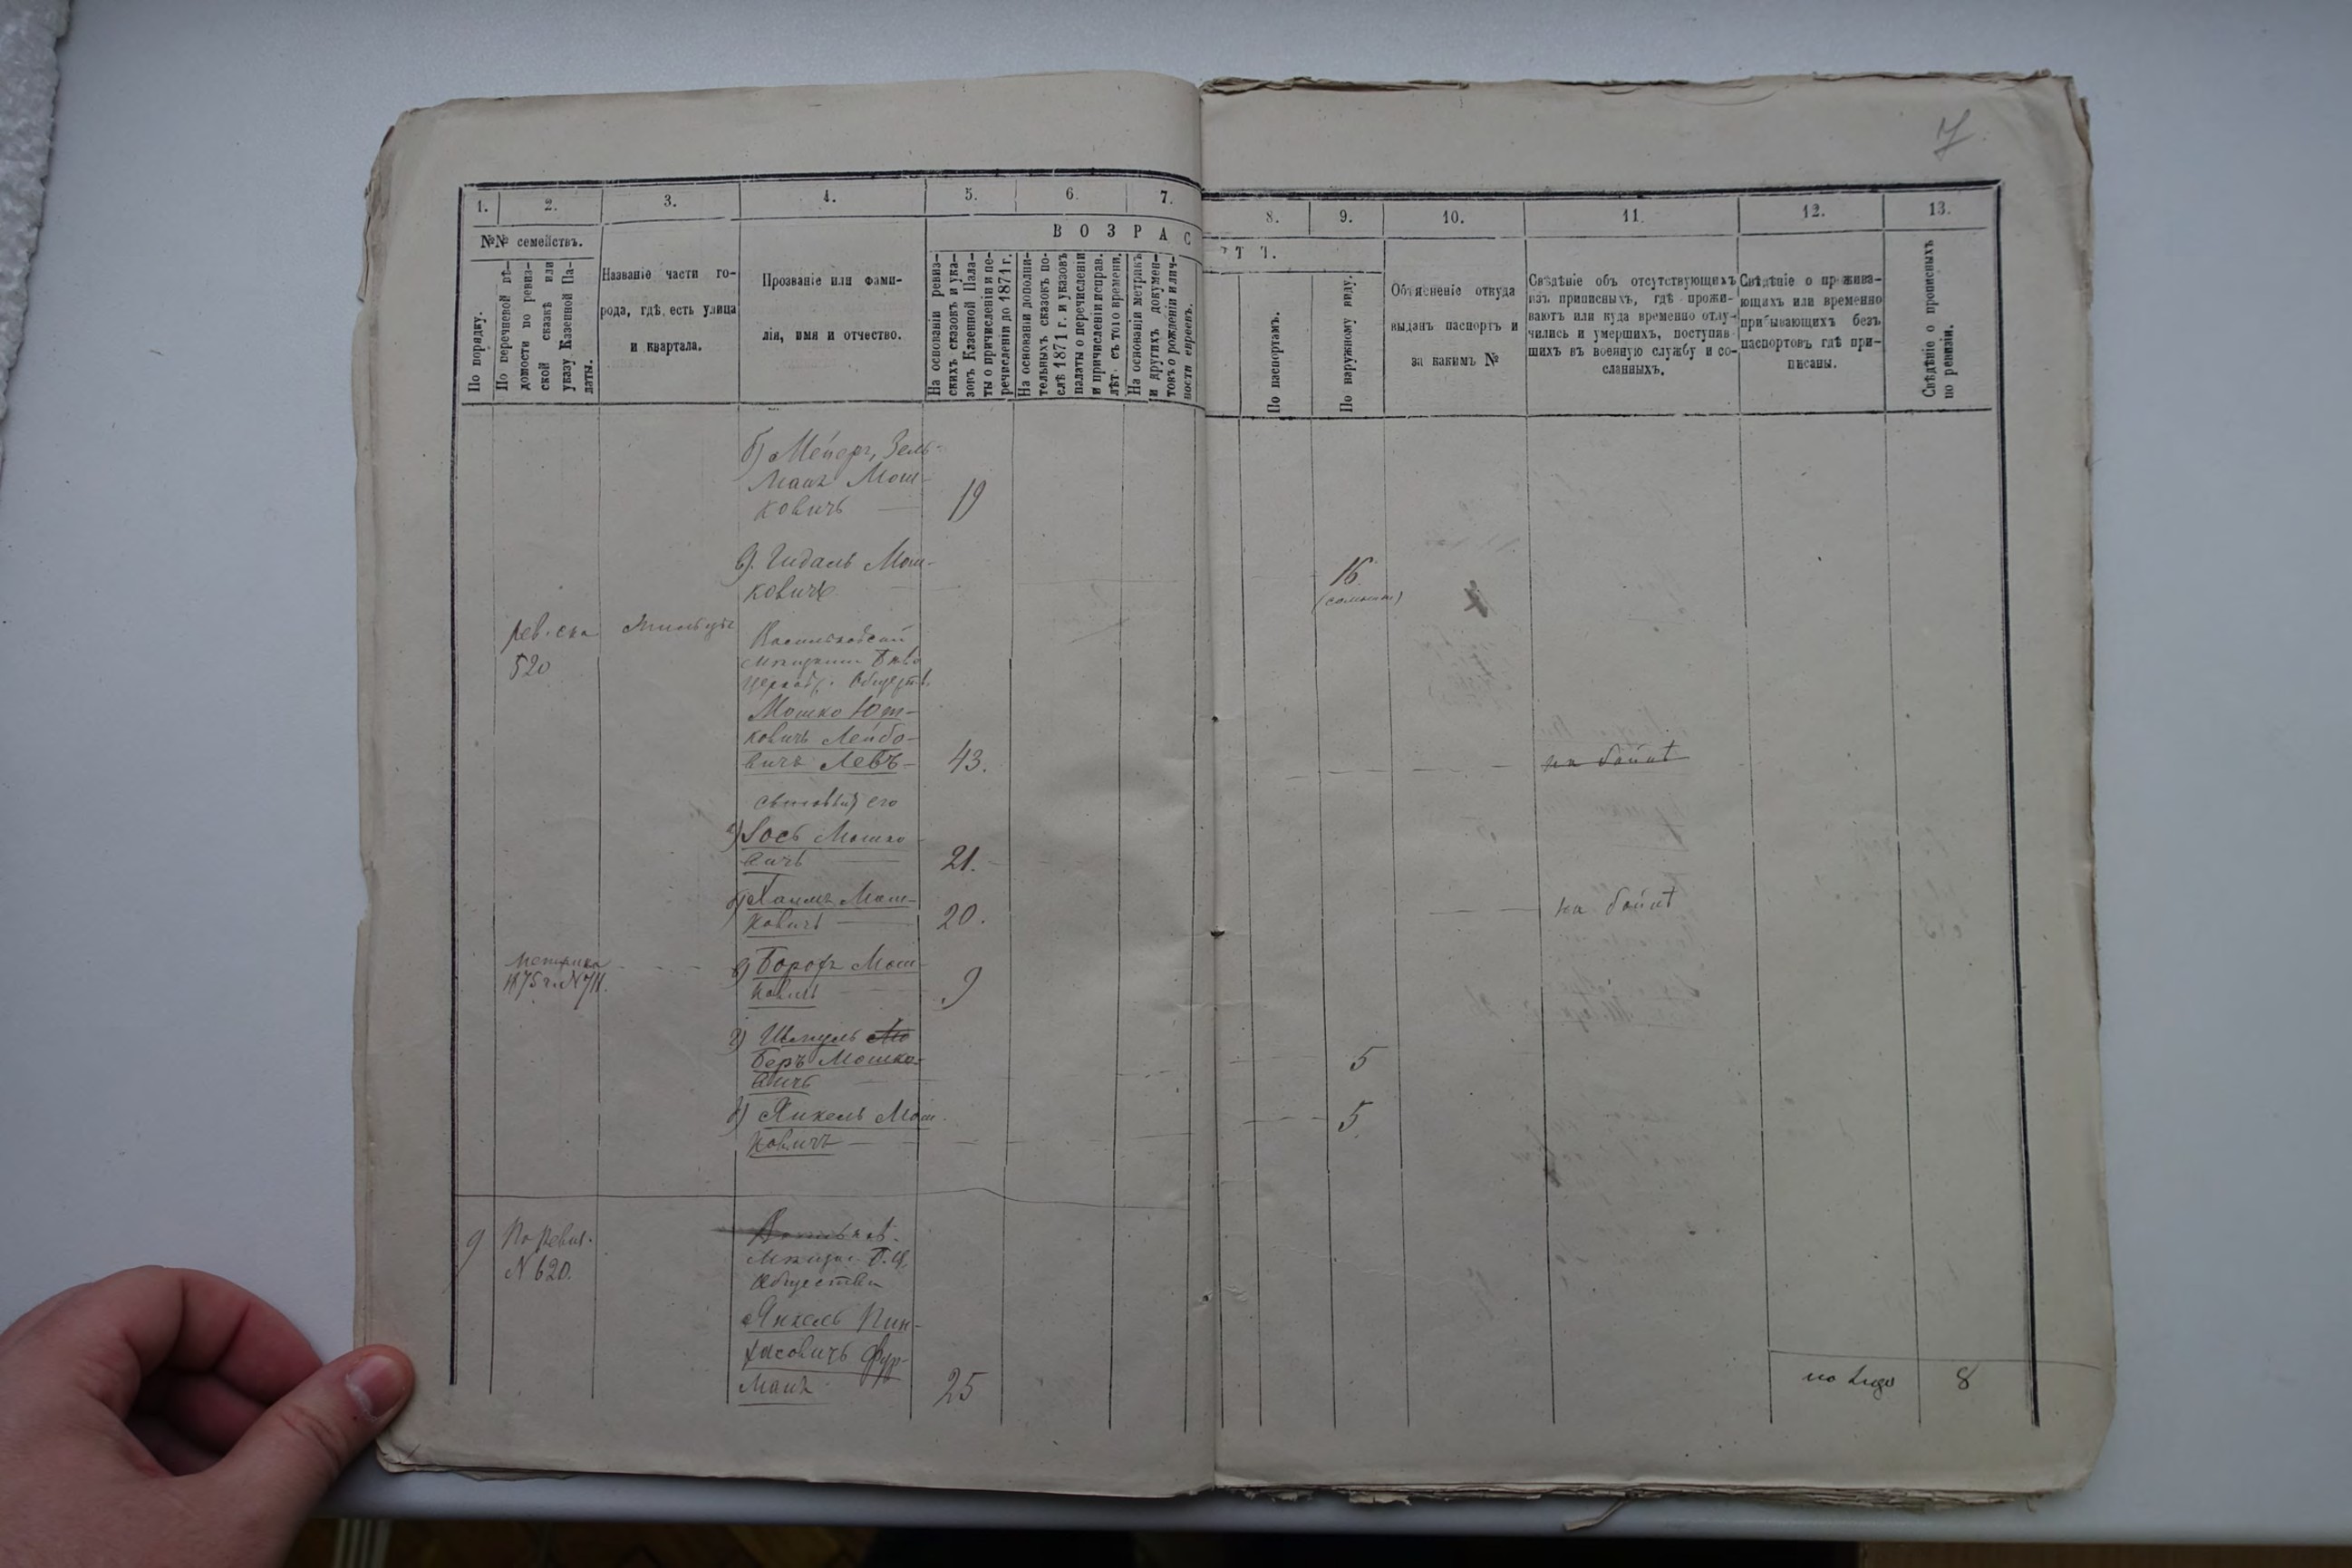 7
1. 2. 3. 4. 5. 6. 7. 8. 9. 10. 11. 12. 13.
№№ семействъ.
В О З Р А С Т Ъ.
По порядку.
По перечневой вѣ-
домости по ревиз-
ской сказкѣ или
указу Казенной Па-
латы.
Названіе части го-
рода, гдѣ есть улица
и квартала.
Прозваніе или фами-
лія, имя и отчество.
На основаніи ревиз-
скихъ сказокъ и ука-
зовъ Казенной Пала-
ты о причисленіи и пе-
речисленіи до 1871 г.
На основаніи дополни-
тельныхъ сказокъ по-
слѣ 1871 г. и указовъ
палаты о перечисленіи
и причисленіи исправ.
лѣт. съ того времени.
На основаніи метрикъ
и другихъ докумен-
товъ о рожденіи и лич-
ности евреевъ.
По паспортамъ.
По наружному виду.
Объясненіе откуда
выданъ паспортъ и
за какимъ №
Свѣдѣніе объ отсутствующихъ
изъ приписныхъ, гдѣ прожи-
ваютъ или куда временно отлу-
чились и умершихъ, поступив
шихъ въ военную службу и со-
сланныхъ.
Свѣдѣніе о прожива-
ющихъ или временно
прибывающихъ безъ
паспортовъ гдѣ при-
писаны.
Свѣдѣніе о прописныхъ
по ревизіи.
б) Мейеръ, Зель-
манъ Мош-
ковичъ 19
в). Гидаль Мош-
ковичъ 16
рев. ска
520
Мошко Ют-
ковичъ Лейбо-
вичъ Левъ 43. на войнѣ
сыновья его
а) Іось Мошко
вичъ 21.
б) Хаимъ Мош-
ковичъ 20. на войнѣ
метрика
1875 г. N 711.
в) Борохъ Мош-
ковичъ 9
г) Шмуль Мо
Беръ Мошко-
вичъ 5
д) Янкель Мош
ковичъ 5
9 По Ревиз.
N 620.
Общества
Янкель Пин-
хасовичъ Фур-
манъ 25
8